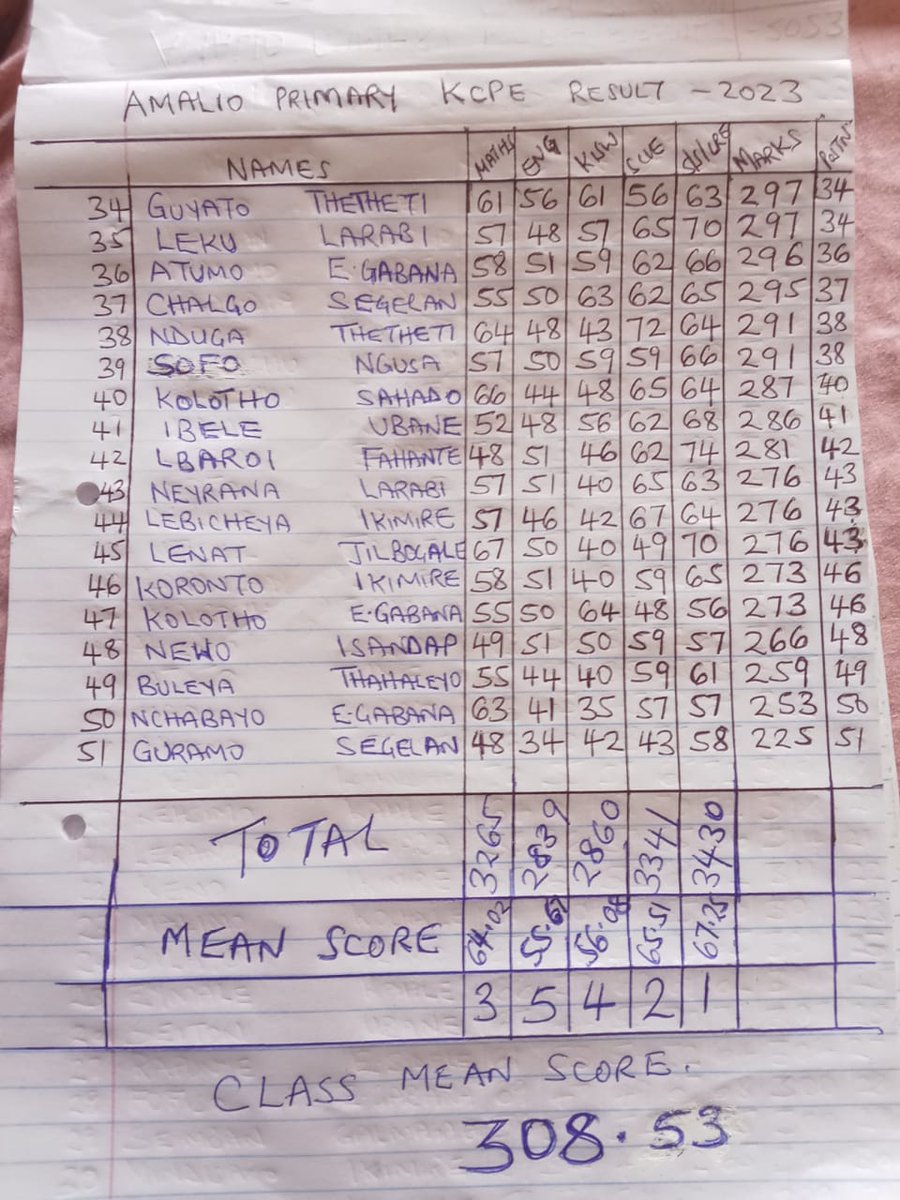 AMALIO PRIMARY KCPE RESULT - 2023
NAMES MATHS ENG KISW SCIE SS/CRE MARKS POSTN
34 GUYATO THETHETI 61 56 61 56 63 297 34
35 LEKU LARABI 57 48 57 65 70 297 34
36 ATUMO E.GABANA 58 51 59 62 66 296 36
37 CHALGO SEGELAN 55 50 63 62 65 295 37
38 NDUGA THETHETI 64 48 43 72 64 291 38
39 SOFO NGUSA 57 50 59 59 66 291 38
40 KOLOTHO SAHADO 66 44 48 65 64 287 40
41 IBELE UBANE 52 48 56 62 68 286 41
42 LBAROI FAHANTE 48 51 46 62 74 281 42
43 NEYRANA LARABI 57 51 40 65 63 276 43
44 LEBICHEYA IKIMIRE 57 46 42 67 64 276 43
45 LENAT JILBOGALE 67 50 40 49 70 276 43
46 KORONTO IKIMIRE 58 51 40 59 65 273 46
47 KOLOTHO E.GABANA 55 50 64 48 56 273 46
48 NEWO ISANDAP 49 51 50 59 57 266 48
49 BULEYA THAHALEYO 55 44 40 59 61 259 49
50 NCHABAYO E.GABANA 63 41 35 57 57 253 50
51 GURAMO SEGELAN 48 34 42 43 58 225 51
TOTAL 3265 2839 2860 3341 3430
MEAN SCORE 64.02 55.67 56.08 65.51 67.25
3 5 4 2 1
CLASS MEAN SCORE.
308.53